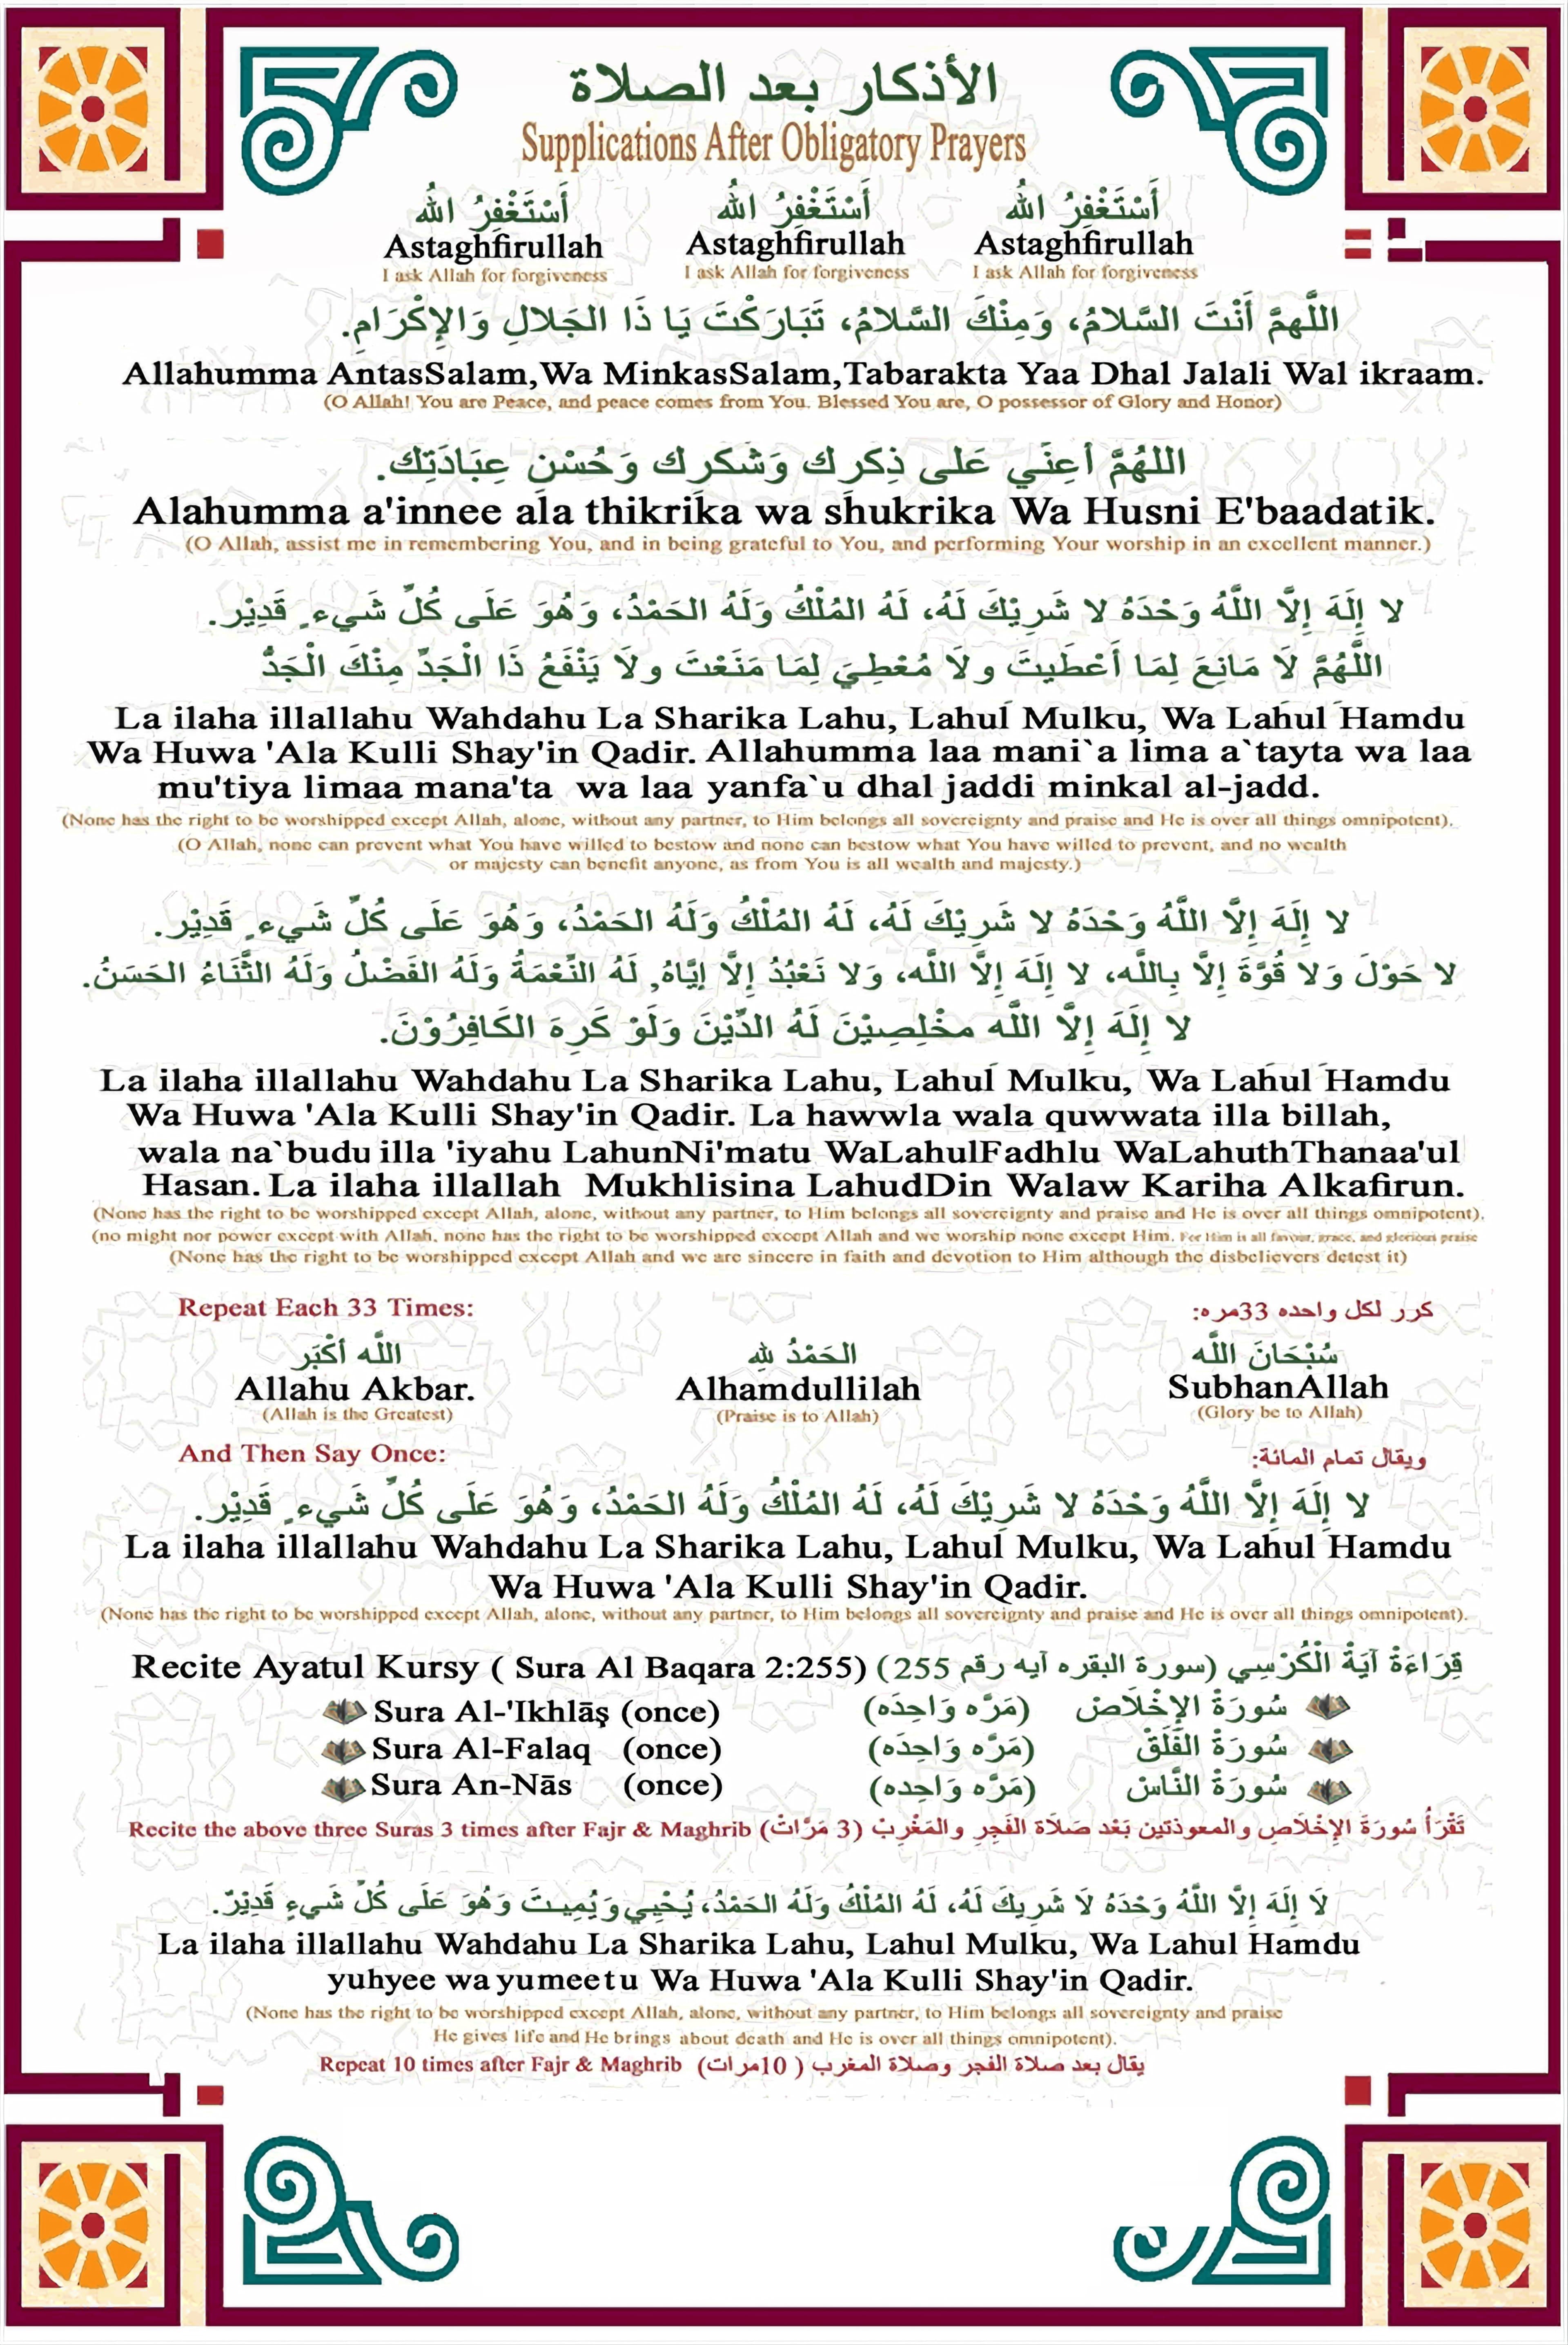 الأذكار بعد الصلاة
Supplications After Obligatory Prayers
أَسْتَغْفِرُ الله أَسْتَغْفِرُ الله أَسْتَغْفِرُ الله
Astaghfirullah Astaghfirullah Astaghfirullah
I ask Allah for forgiveness I ask Allah for forgiveness I ask Allah for forgiveness
اللَّهمَّ أَنْتَ السَّلامُ، وَمِنْكَ السَّلامُ، تَبَارَكْتَ يَا ذَا الجَلالِ وَالإِكْرَامِ.
Allahumma AntasSalam,Wa MinkasSalam,Tabarakta Yaa Dhal Jalali Wal ikraam.
(O Allah! You are Peace, and peace comes from You. Blessed You are, O possessor of Glory and Honor)
اللهُمَّ أعِنَّي عَلى ذِكرِك وَشكرِك وَحُسْنِ عِبَادَتِك.
Alahumma a'innee ala thikrika wa shukrika Wa Husni E'baadatik.
(O Allah, assist me in remembering You, and in being grateful to You, and performing Your worship in an excellent manner.)
لا إِلَهَ إِلاَّ اللَّهُ وَحْدَهُ لا شَرِيْكَ لَهُ، لَهُ المُلْكُ وَلَهُ الحَمْدُ، وَهُوَ عَلَى كُلِّ شَيءٍ قَدِيْر.
اللَّهُمَّ لاَ مَانِعَ لِمَا أَعْطَيتَ ولاَ مُعْطِيَ لِمَا مَنَعْتَ ولاَ يَنْفَعُ ذَا الْجَدِّ مِنْكَ الْجَدُّ
La ilaha illallahu Wahdahu La Sharika Lahu, Lahul Mulku, Wa Lahul Hamdu
Wa Huwa 'Ala Kulli Shay'in Qadir. Allahumma laa mani`a lima a`tayta wa laa
mu'tiya limaa mana'ta wa laa yanfa`u dhal jaddi minkal al-jadd.
(None has the right to be worshipped except Allah, alone, without any partner, to Him belongs all sovereignty and praise and He is over all things omnipotent).
(O Allah, none can prevent what You have willed to bestow and none can bestow what You have willed to prevent, and no wealth
or majesty can benefit anyone, as from You is all wealth and majesty.)
لا إِلَهَ إِلاَّ اللَّهُ وَحْدَهُ لا شَرِيْكَ لَهُ، لَهُ المُلْكُ وَلَهُ الحَمْدُ، وَهُوَ عَلَى كُلِّ شَيءٍ قَدِيْر.
لا حَوْلَ وَلا قُوَّةَ إِلاَّ بِاللَّه، لا إِلَهَ إِلاَّ اللَّه، وَلا نَعْبُدُ إِلاَّ إِيَّاهُ, لَهُ النِّعْمَةُ وَلَهُ الفَضْلُ وَلَهُ الثَّنَاءُ الحَسَنُ.
لا إِلَهَ إِلاَّ اللَّه مخْلِصِيْنَ لَهُ الدِّيْنَ وَلَوْ كَرِهَ الكَافِرُوْنَ.
La ilaha illallahu Wahdahu La Sharika Lahu, Lahul Mulku, Wa Lahul Hamdu
Wa Huwa 'Ala Kulli Shay'in Qadir. La hawwla wala quwwata illa billah,
wala na`budu illa 'iyahu LahunNi'matu WaLahulFadhlu WaLahuthThanaa'ul
Hasan. La ilaha illallah Mukhlisina LahudDin Walaw Kariha Alkafirun.
(None has the right to be worshipped except Allah, alone, without any partner, to Him belongs all sovereignty and praise and He is over all things omnipotent).
(no might nor power except with Allah, none has the right to be worshipped except Allah and we worship none except Him. For Him is all favour, grace, and glorious praise
(None has the right to be worshipped except Allah and we are sincere in faith and devotion to Him although the disbelievers detest it)
Repeat Each 33 Times: كرر لكل واحده 33مره:
اللَّه أكْبَر الحَمْدُ لله سُبْحَانَ اللَّه
Allahu Akbar. Alhamdullilah SubhanAllah
(Allah is the Greatest) (Praise is to Allah) (Glory be to Allah)
And Then Say Once: ويقال تمام المائة:
لا إِلَهَ إِلاَّ اللَّهُ وَحْدَهُ لا شَرِيْكَ لَهُ، لَهُ المُلْكُ وَلَهُ الحَمْدُ، وَهُوَ عَلَى كُلِّ شَيءٍ قَدِيْر.
La ilaha illallahu Wahdahu La Sharika Lahu, Lahul Mulku, Wa Lahul Hamdu
Wa Huwa 'Ala Kulli Shay'in Qadir.
(None has the right to be worshipped except Allah, alone, without any partner, to Him belongs all sovereignty and praise and He is over all things omnipotent).
Recite Ayatul Kursy ( Sura Al Baqara 2:255) قِرَاءَةْ آيَةْ الْكُرْسِي (سورة البقره آيه رقم 255)
Sura Al-'Ikhlāş (once) سُورَةْ الإِخْلَاصْ (مَرَّه وَاحِدَه)
Sura Al-Falaq (once) سُورَةْ الفَلَقْ (مَرَّه وَاحِدَه)
Sura An-Nās (once) سُورَةْ النَّاسْ (مَرَّه وَاحِدِه)
Recite the above three Suras 3 times after Fajr & Maghrib تَقْرَأُ سُورَةَ الإِخْلَاصِ والمعوذتين بَعْد صَلَاة الفَجِر والمَغْرِبْ (3 مَرَّاتْ)
لَا إِلَهَ إِلاَّ اللَّهُ وَحْدَهُ لَا شَرِيكَ لَهُ، لَهُ المُلْكُ وَلَهُ الحَمْدُ، يُحْيِي وَيُمِيتَ وَهُوَ عَلَى كُلِّ شَيءٍ قَدِيْرٌ.
La ilaha illallahu Wahdahu La Sharika Lahu, Lahul Mulku, Wa Lahul Hamdu
yuhyee wa yumeetu Wa Huwa 'Ala Kulli Shay'in Qadir.
(None has the right to be worshipped except Allah, alone, without any partner, to Him belongs all sovereignty and praise
He gives life and He brings about death and He is over all things omnipotent).
Repeat 10 times after Fajr & Maghrib يقال بعد صلاة الفجر وصلاة المغرب ( 10مرات)